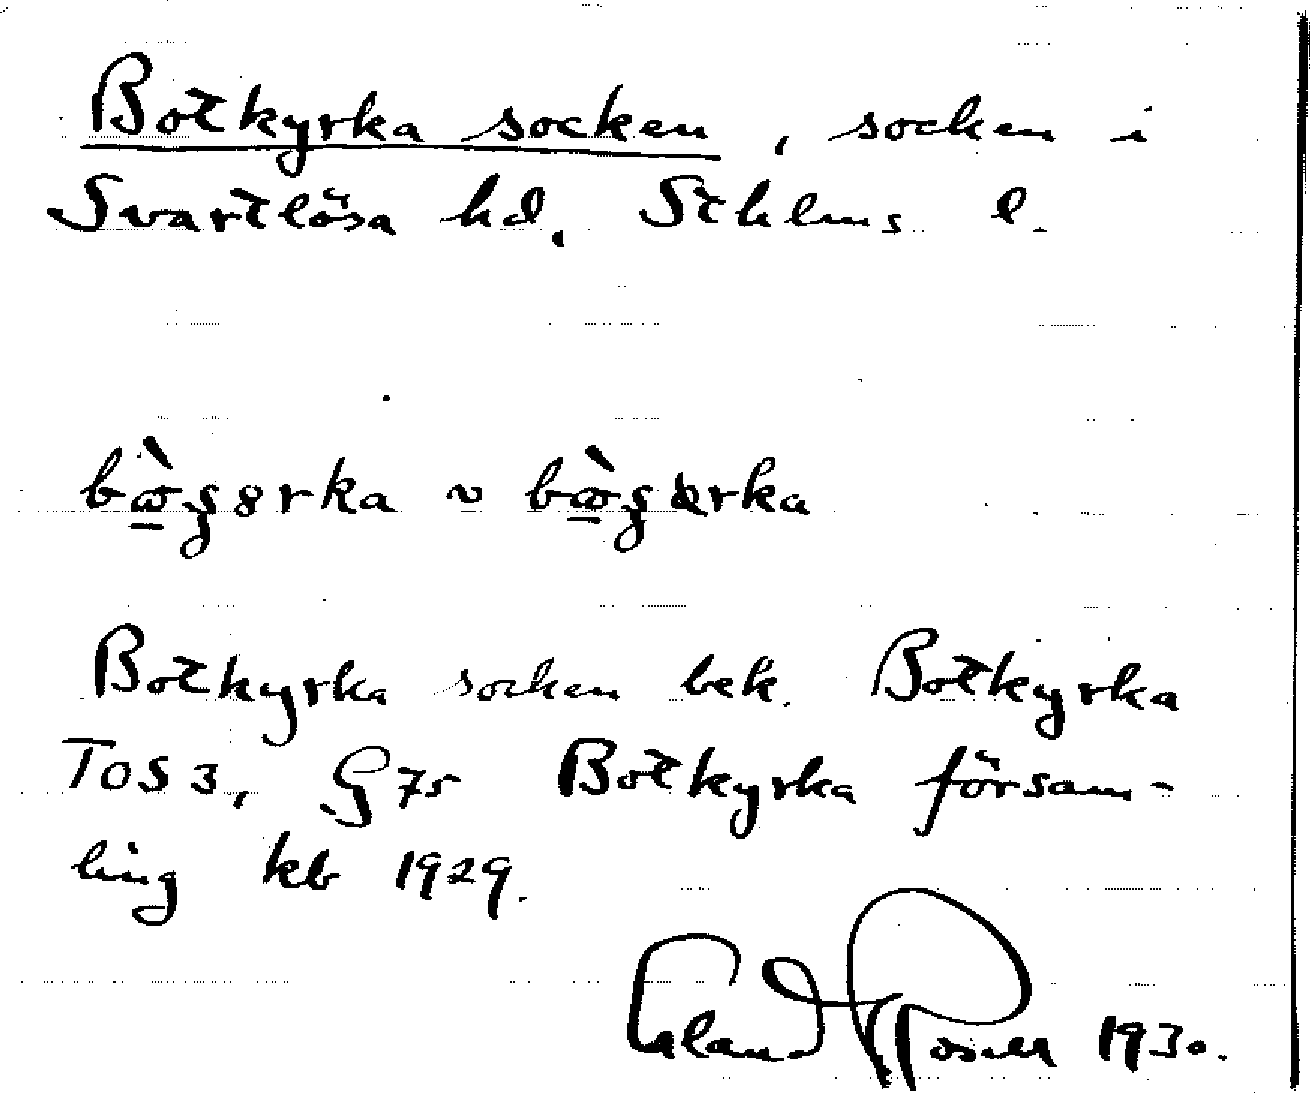 Botkyrka socken, socken i
Svartlösa hd. Sthlms l.
Botkyrka socken bek. Botkyrka
TOS 3, G 75 Botkyrka försam-
ling kb 1929.
Erland Rosell 1930.